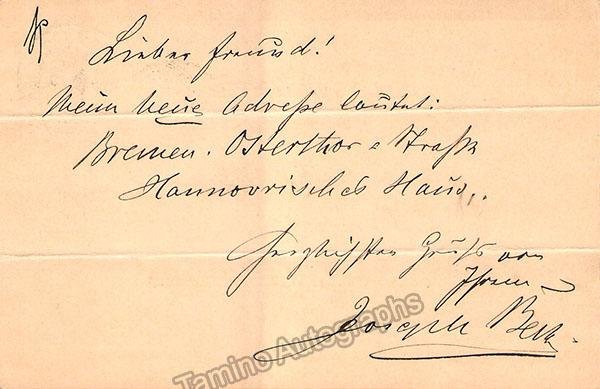 Lieber Freund!
Meine neue Adreße lautet:
Bremen. Osterthor=Straße
Hannovrisches Haus.
Herzlichsten Gruß von
Ihrem
Joseph Beck
Tamino Autographs